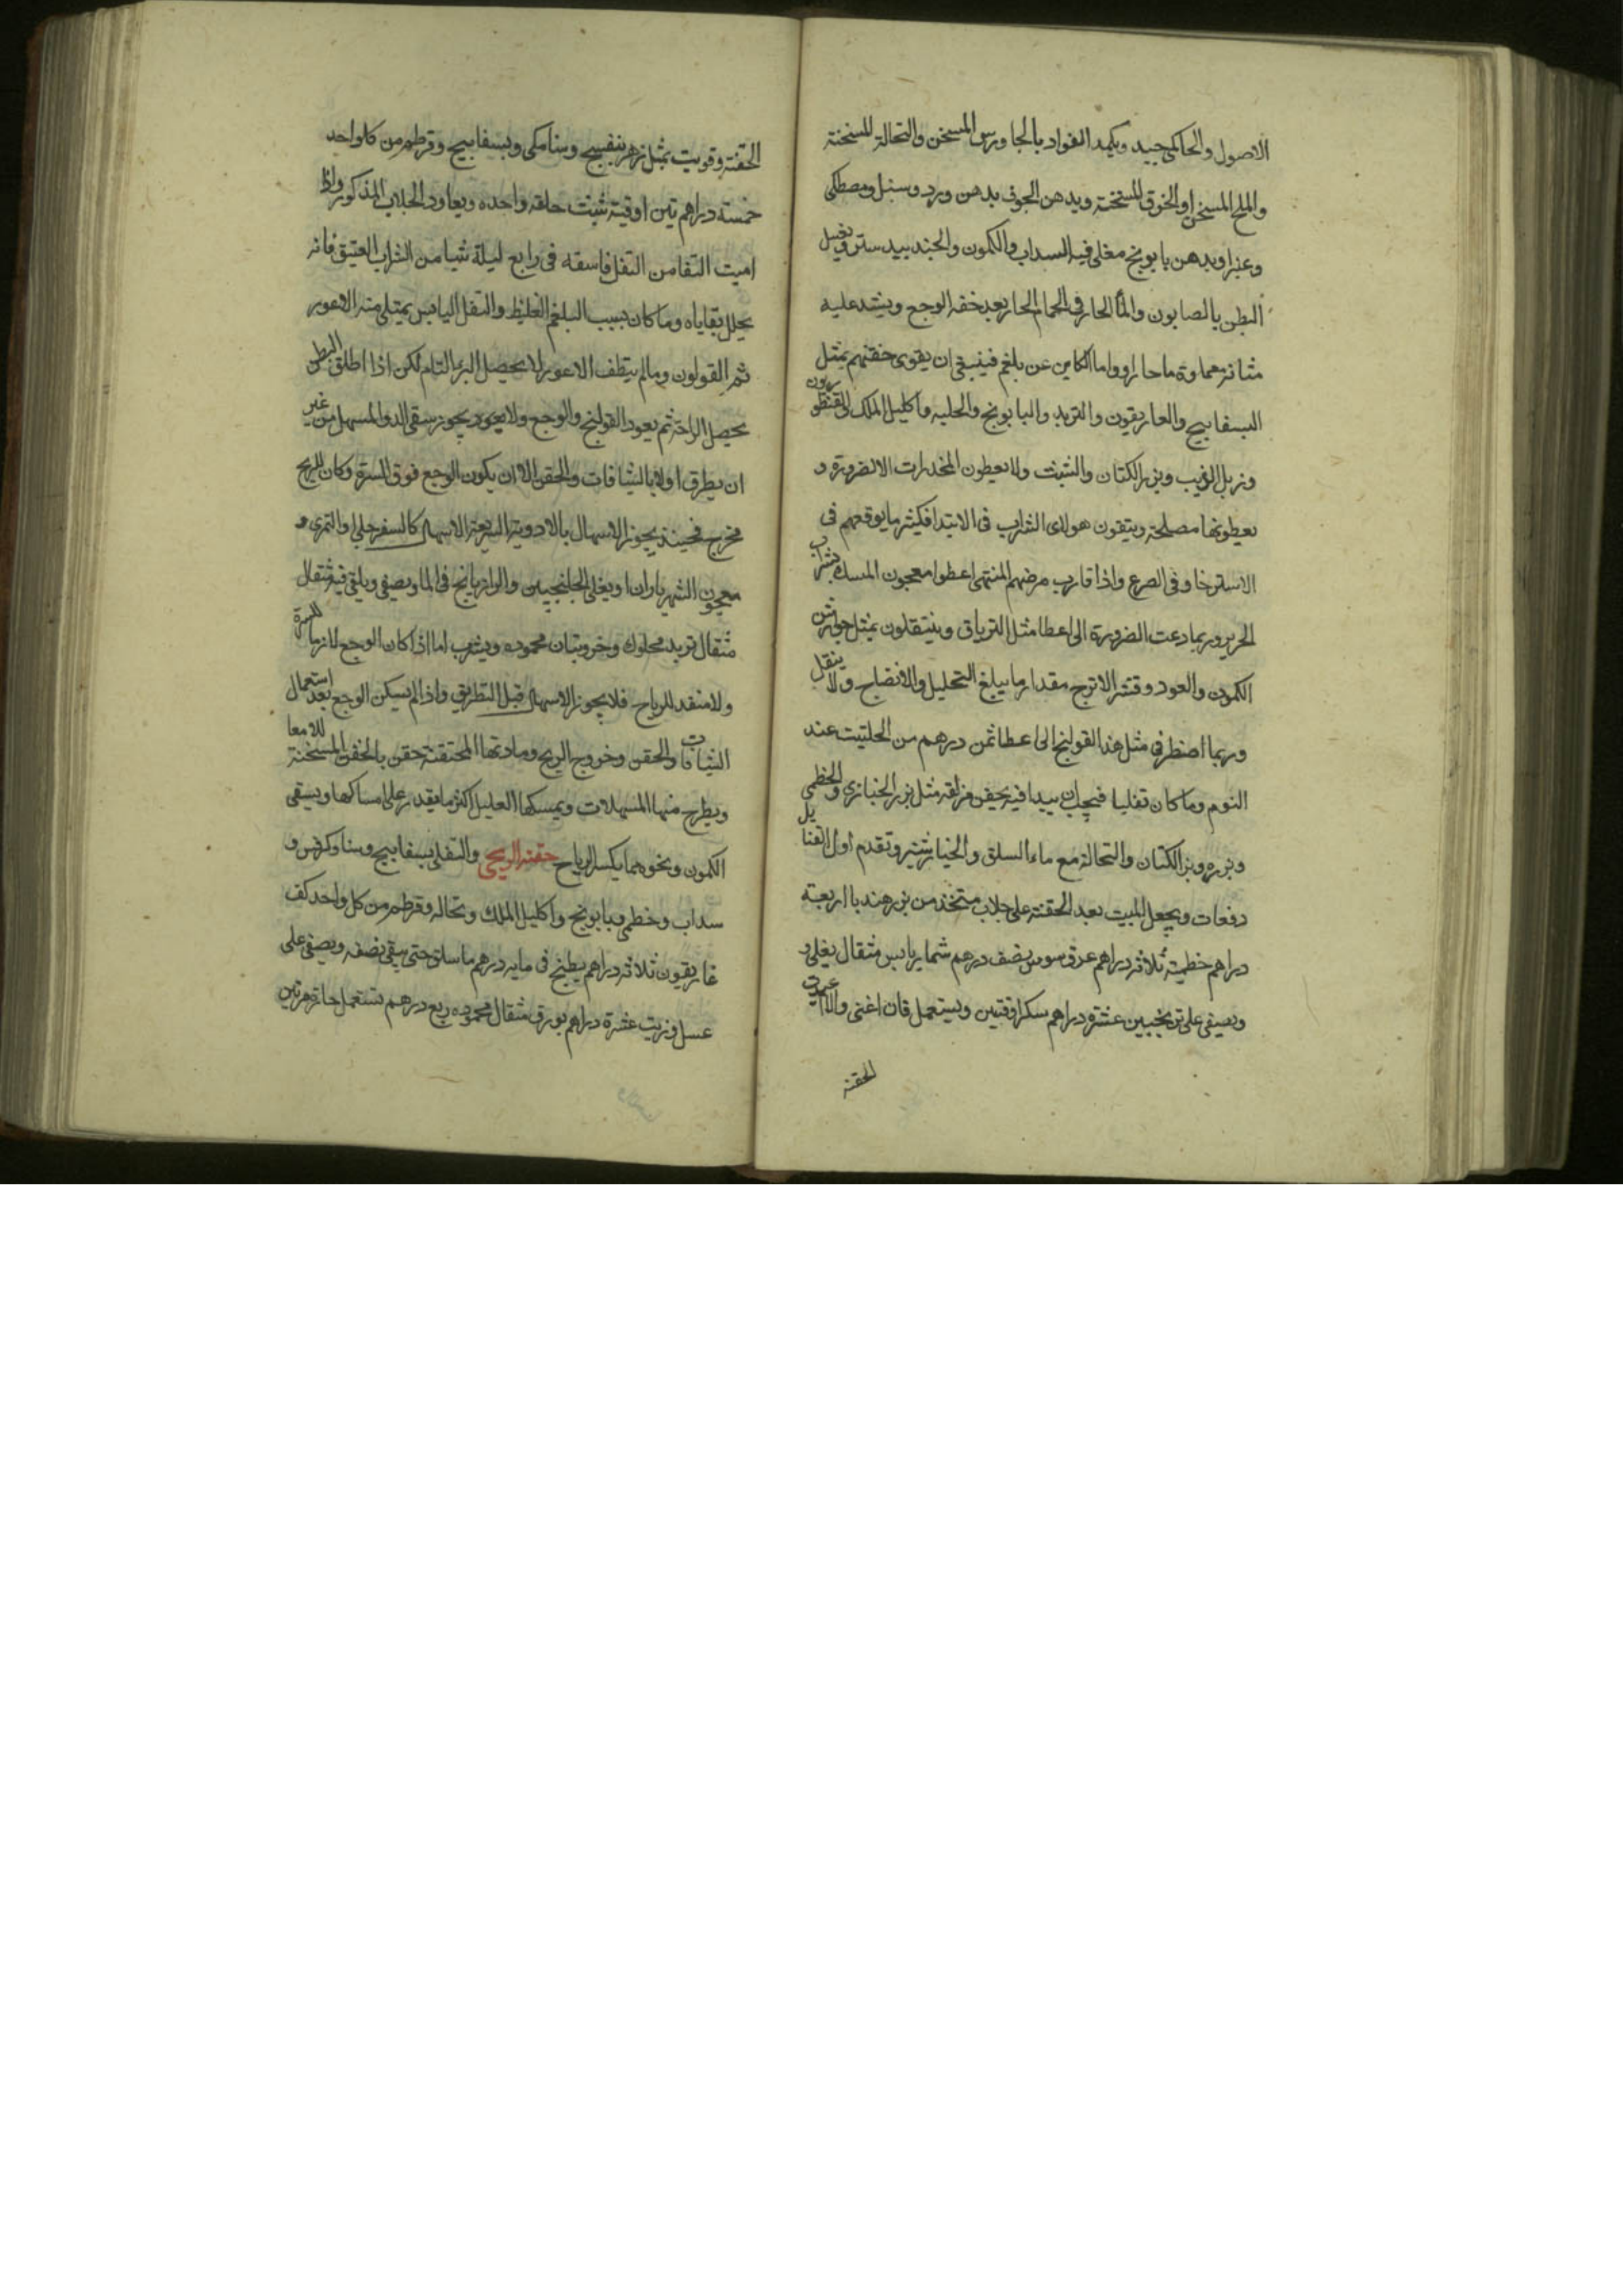 الاصول والحاكمى جيد ويكمد الفواد بالجاورس المسخن والنحالة المسخنة
والملح المسخن او الخرق المسخنة ويدهن الجوف بدهن ورد وسنبل ومصطكى
وعنبر او بدهن بابونج مغلى فيه السداب والكمون والجندبيدستر ويغسل
البطن بالصابون والمأ الحار فى الحمام الحار بعد خفه الوجع ويشد عليه
مثانة مماوة ماحارا واما الكاين عن بلغم فينبغى ان يقوى حقنهم بمثل
البسفايج والغاريقون والتربد والبابونج والحلبه واكليل الملك والقنطوريون
وزبل الذيب وبزر الكتان والشبت ولا يعطون المخدرات الا لضرورة و
يعطونها مصلحة ويتقون هولاى الشراب فى الابتدا فكيثر ما يوقعهم فى
الاسترخا وفى الصرع واذا قارب مرضهم المنتهى اعطوا معجون المسك بشراب
الحرير وربما دعت الضرورة الى اعطا مثل الترياق وينتقلون بمثل جوارش
الكمون والعود وقشر الاترج مقدار ما يبلغ التحليل والانضاج ولا ينقل
وربما اضطر فى مثل هذا القولنج الى اعطا ثمن درهم من الحلتيت عند
النوم وما كان تفليا فيجب ان يبدا فيه بحقن مزلقه مثل بزر الخبازى والخطمى
وبزره وبزر الكتان والنحالة مع ماء السلق والخيارشنبر وتقدم اول الفتايل
دفعات ويجعل المبيت بعد الحقنة على جلاب متخذ من بزر هندبا اربعة
دراهم خطمية ثلاثه دراهم عرق سوس نصف درهم شمار يابس مثقال يغلى و
ويصفى على ترنجبين عشره دراهم سكر اوقتين ويستعمل فان اغنى والا اعيدت
الحقنه
الحقنة وقويت بمثل زهر بنفسج وسنامكى وبسفايج وقرطم من كل واحد
خمسة دراهم تين اوقية شبت حلقه واحده ويعاود الجلاب المذكور واذا
اميت النقا من التفل فاسقه فى رابع ليلة شيا من الشراب العتيق فانه
يحلل بقاياه وما كان بسبب البلغم الغليظ والتفل اليابس يمتلى منه الاعور
ثم القولون ومالم ينظف الاعور لا يحصل البرء التام لكن اذا اطلق البطن
يحصل الراحة ثم يعود القولنج والوجع ولا يجوز سقى الدوا المسهل من غير
ان يطرق اولا بالشيافات والحقن الا ان يكون الوجع فوق السرة وكان للريح
مخرج فحينئذ يجوز الاسهال بالادوية السريعة الاسهال كالسفرجلى او التمرى و
معجون الشهرياران او يغلى الجلنجبين والرازيانج فى الما ويصفى ويلقى فيه مثقال
مثقال تربد محلوك وخروبتان محموده ويشرب اما اذا كان الوجع لازما للسرة
ولا منفد للرياح فلا يجوز الاسهال قبل التطريق واذا لم يسكن الوجع بعد استعمال
الشيافات والحقن وخروج الريح ومادتها المحتقنة حقن بالحقن المسخنة للامعا
ويطرح منها المسهلات ويمسكها العليل اكثر ما يقدر على امساكها ويسقى
الكمون ونحوه مما يكسر الرياح حقنه الريحى والتفلى بسفايج وسنا وكرفس و
سداب وخطمى وبابونج واكليل الملك ونحاله وقرطم من كل واحد كف
غاريقون ثلاثه دراهم يطبخ فى مايه درهم ما سلق حتى يبقى نصفه ويصفى على
عسل وزيت عشرة دراهم بورق مثقال محموده ربع درهم تستعمل حارة مرتين